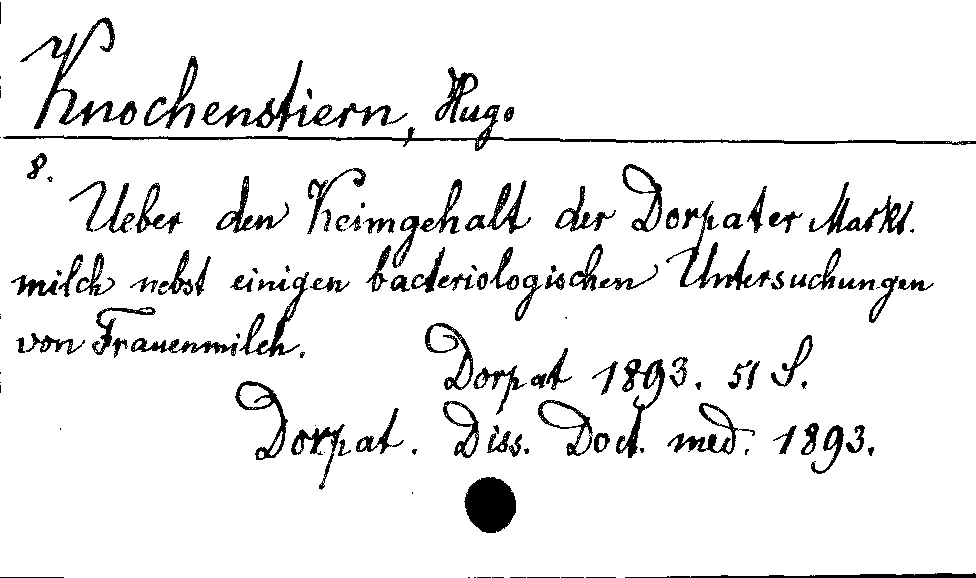 Knochenstiern, Hugo
8.
Ueber den Keimgehalt der Dorpater Markt.
milch nebst einigen bacteriologischen Untersuchungen
von Frauenmilch.
Dorpat 1893. 51 S.
Dorpat. Diss. Doct. med. 1893.